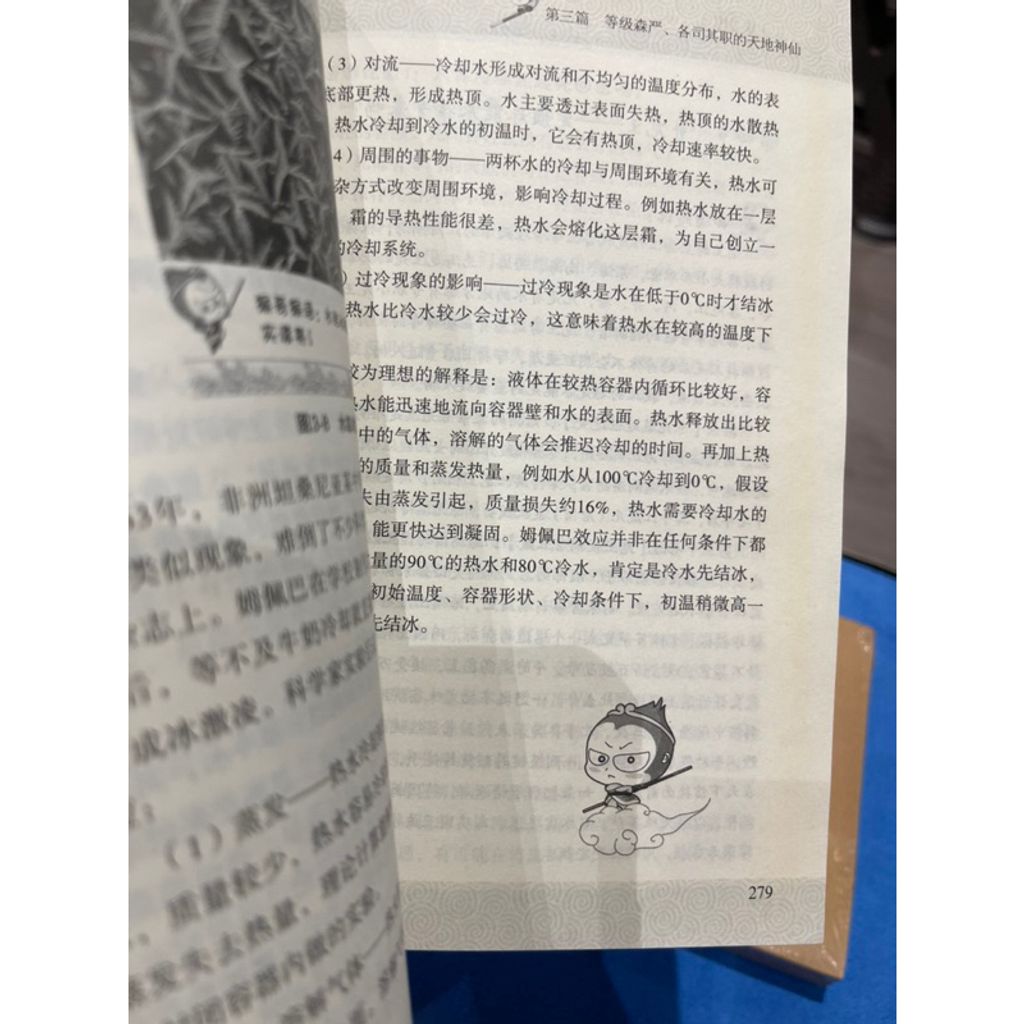 猴哥猴语：
实漂亮！
图3-8
63年，非洲坦桑尼亚
类似现象，难倒了不少
志上。姆佩巴在学校
后，等不及牛奶冷却
成冰激凌。科学家
（1）蒸发——热水
质量较少，热水容易
蒸发失去热量，理论计算
容器内做的实验
溶解气体——
第三篇 等级森严、各司其职的天地神仙
（3）对流——冷却水形成对流和不均匀的温度分布，水的表
底部更热，形成热顶。水主要透过表面失热，热顶的水散热
热水冷却到冷水的初温时，它会有热顶，冷却速率较快。
4）周围的事物——两杯水的冷却与周围环境有关，热水可
杂方式改变周围环境，影响冷却过程。例如热水放在一层
霜的导热性能很差，热水会熔化这层霜，为自己创立一
的冷却系统。
）过冷现象的影响——过冷现象是水在低于0℃时才结冰
热水比冷水较少会过冷，这意味着热水在较高的温度下
较为理想的解释是：液体在较热容器内循环比较好，容
热水能迅速地流向容器壁和水的表面。热水释放出比较
中的气体，溶解的气体会推迟冷却的时间。再加上热
的质量和蒸发热量，例如水从100℃冷却到0℃，假设
失由蒸发引起，质量损失约16%，热水需要冷却水的
能更快达到凝固。姆佩巴效应并非在任何条件下都
量的90℃的热水和80℃冷水，肯定是冷水先结冰，
初始温度、容器形状、冷却条件下，初温稍微高一
先结冰。
279